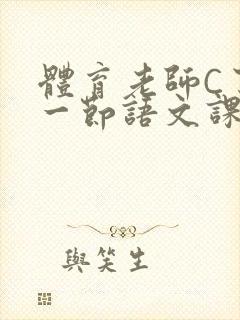 體育老師C
一節語文課
與笑生